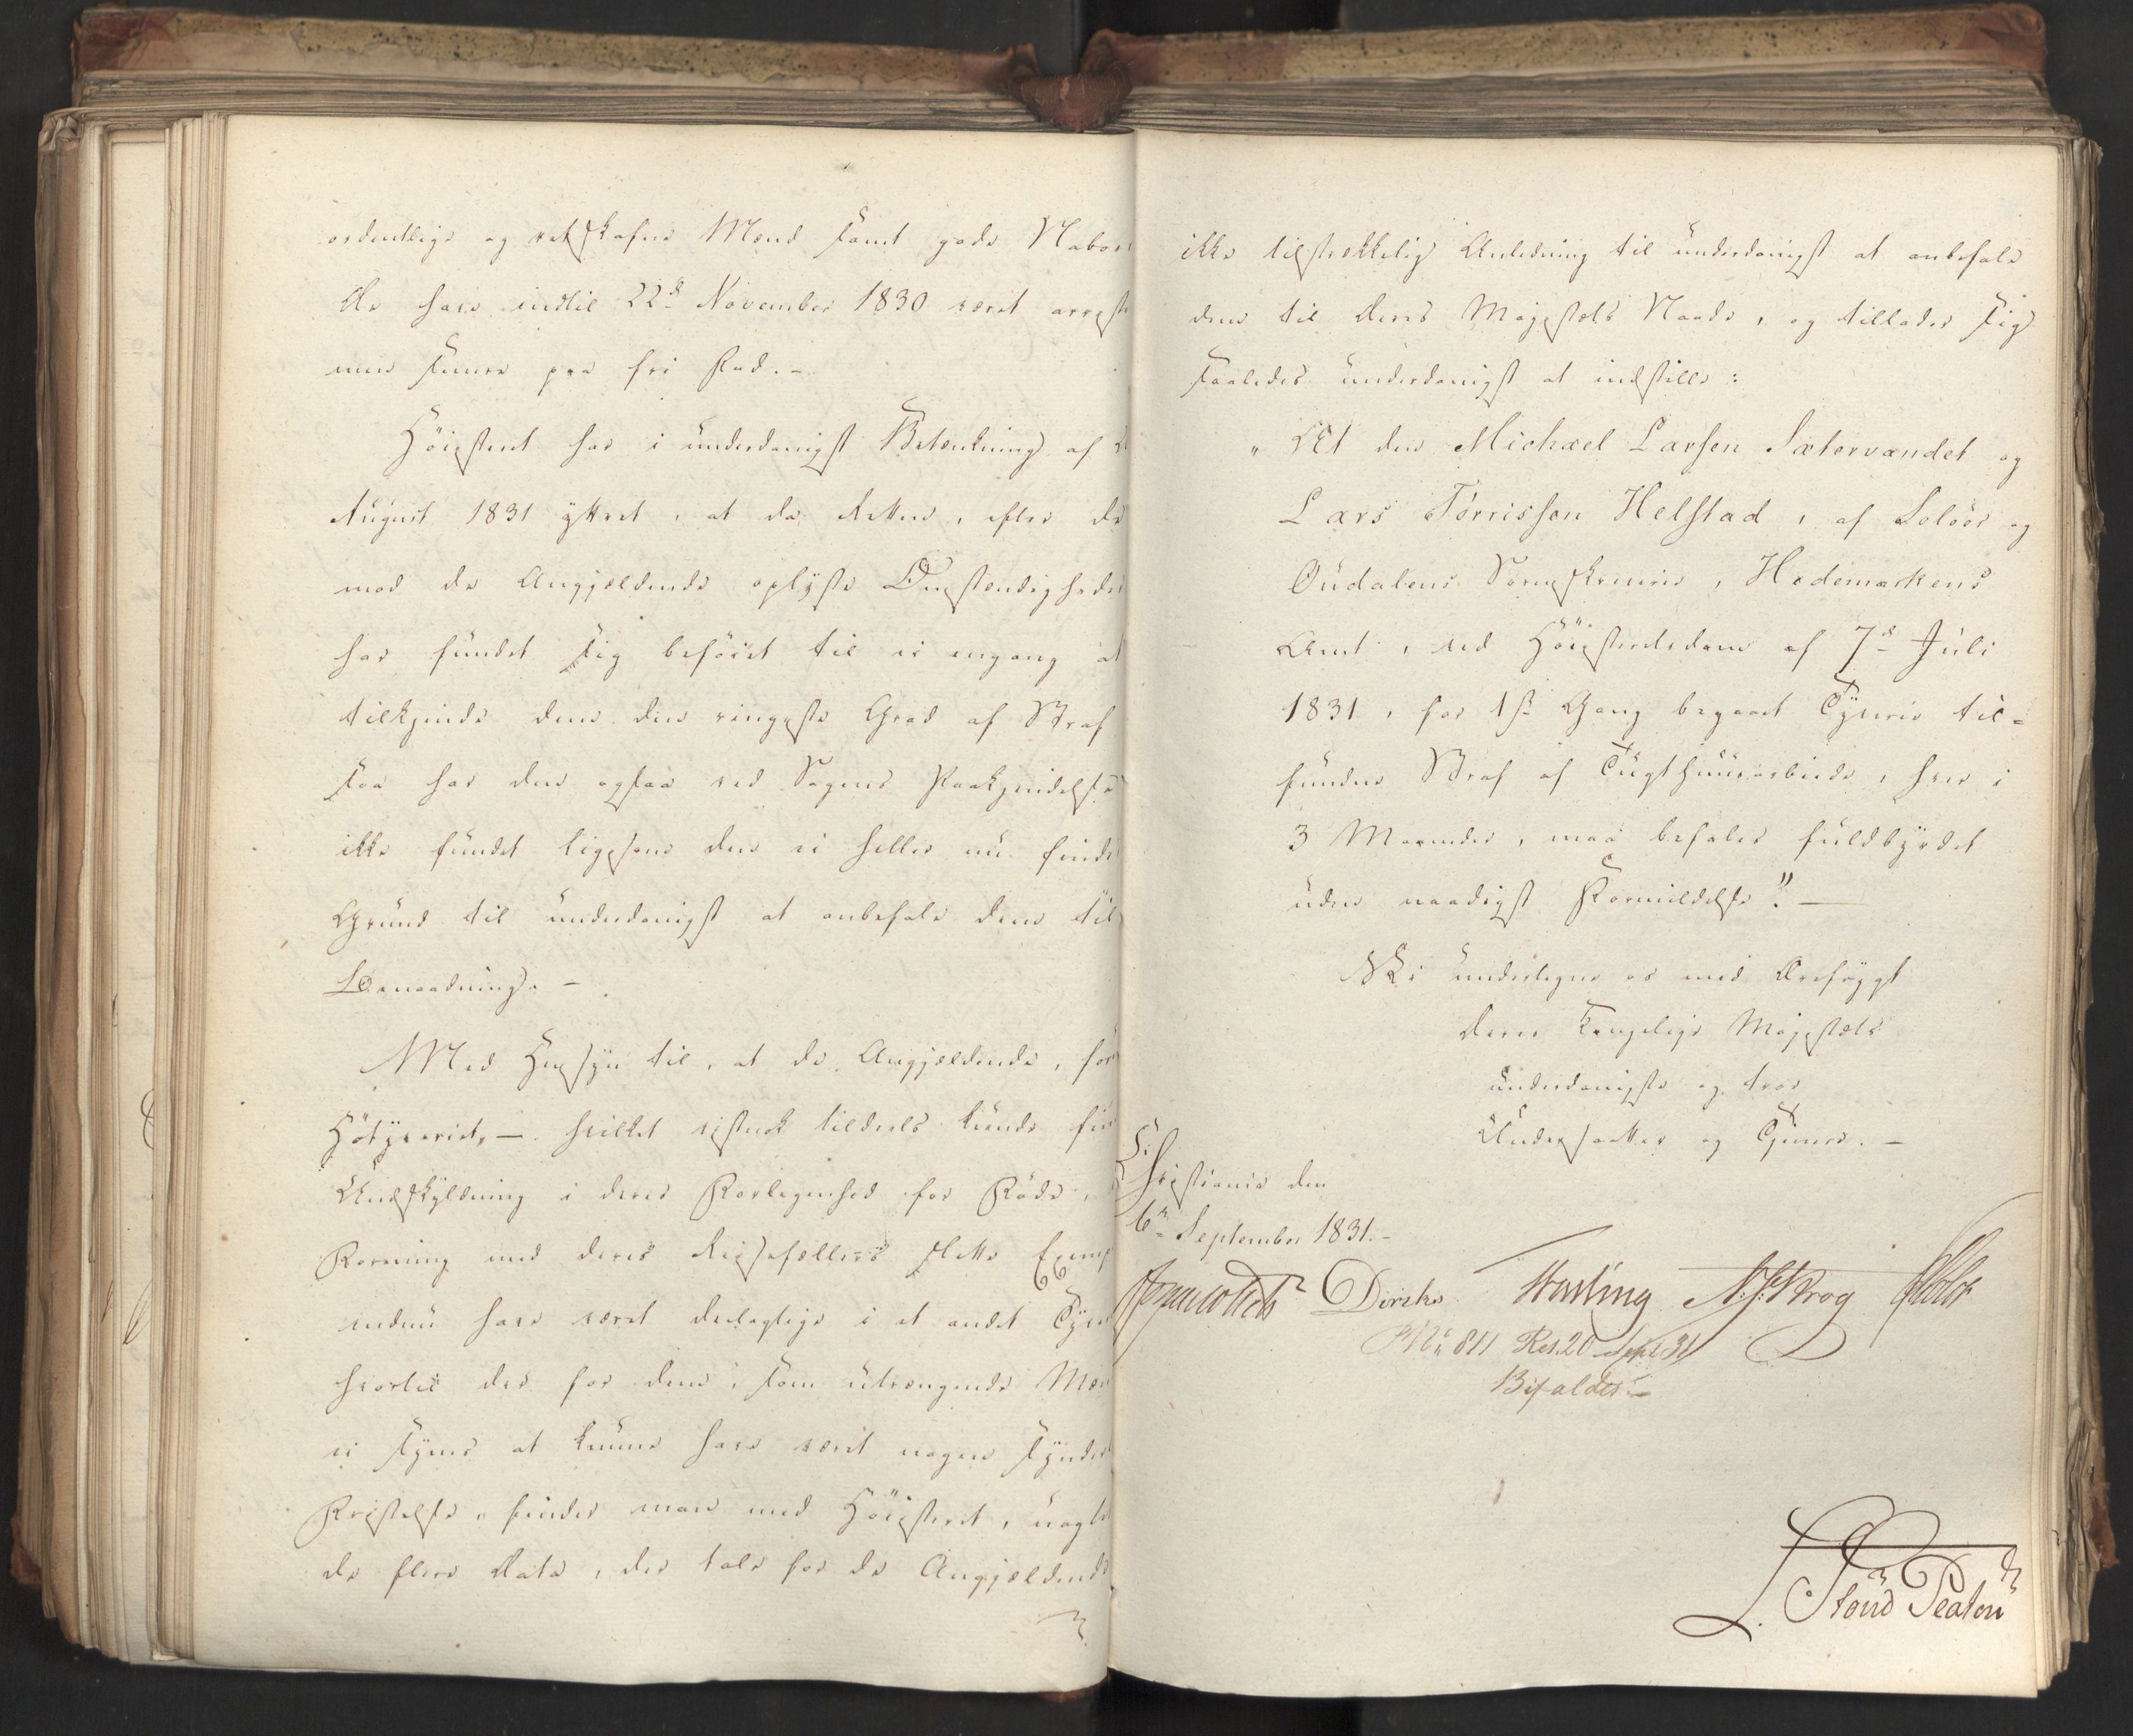 ordentlige og retskafne Mænd samt gode Naboer
De have indtil 22de November 1830 været arreste
men senere paa fri Fod. -
Høiesteret har i underdanigst Betænkning af
August 1831 yttret, at da Retten, efter de
mod de Angjældende oplyste Omstændigheder
har fundet sig beføiet til ei engang at
tilkjende dem den ringeste Grad af Straf
saa har den ogsaa ved Sagens Paakjendelse
ikke fundet ligesom den ei heller nu finder
Grund til underdanigst at anbefale dem til
Benaadning. -
Med Hensyn til, at de Angjældende, for
Høtyveriet, - hvilket vistnok tildeels kunde fin
Undskyldning i deres Forlegenhed for Føde,
Forening med deres Reisefællers slette Exemp
endnu have været deelagtige i et andet Tyve
hvortil der for dem, som utrængende Mæn
ei synes at kunne have været nogen synder
Fristelse, finder man med Høiesteret, uagtet
de flere Data, der tale for de Angjældende
ikke tilstrækkelig Anledning til underdanigst at anbefale
dem til Deres Majestæts Naade, og tillader sig
saaledes underdanigst at indstille:
"At den Michael Larsen Sætervandet og
Lars Torrissen Helstad, af Soløer og
Oudalens Sorenskriverie, Hedemarkens
Amt, ved Høiesteretsdom af 7de Juli
1831, for 1ste Gang begaaet Tyverie til=
fundne Straf af Tugthuusarbeide, hver i
3 Maaneder, maa befales fuldbyrdet
uden naadigst Formildelse". -
Vi undertegne os med Ærefrygt
Deres Kongelige Majestæts
underdanigste og troe
Undersaatter og Tjenere. -
Christiania den
6te September 1831. -
Diriks Motzfeldt N. J. Krog Holst
No 811 Res. 20 Sept. 31
Bifaldes. -